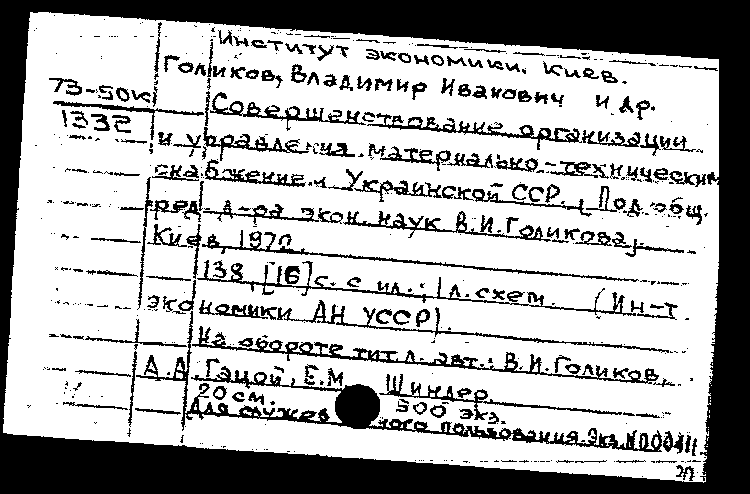 Институт экономики. Киев.
Голиков, Владимир Иванович и др.
73-50к
1332
Совершенствование организации
и управления материально-техническим
снабжением Украинской ССР. [Под общ.
ред. д-ра экон. наук В.И.Голикова].
Киев, 1972.
138, [16] с. с ил.; 1 л. схем. (Ин-т
экономики АН УССР).
На обороте тит. л. авт.: В.И.Голиков,
А.А. Гацой, Е.М. Шиндер.
20 см. 500 экз.
Для служеб ного пользования. Экз. N000411.